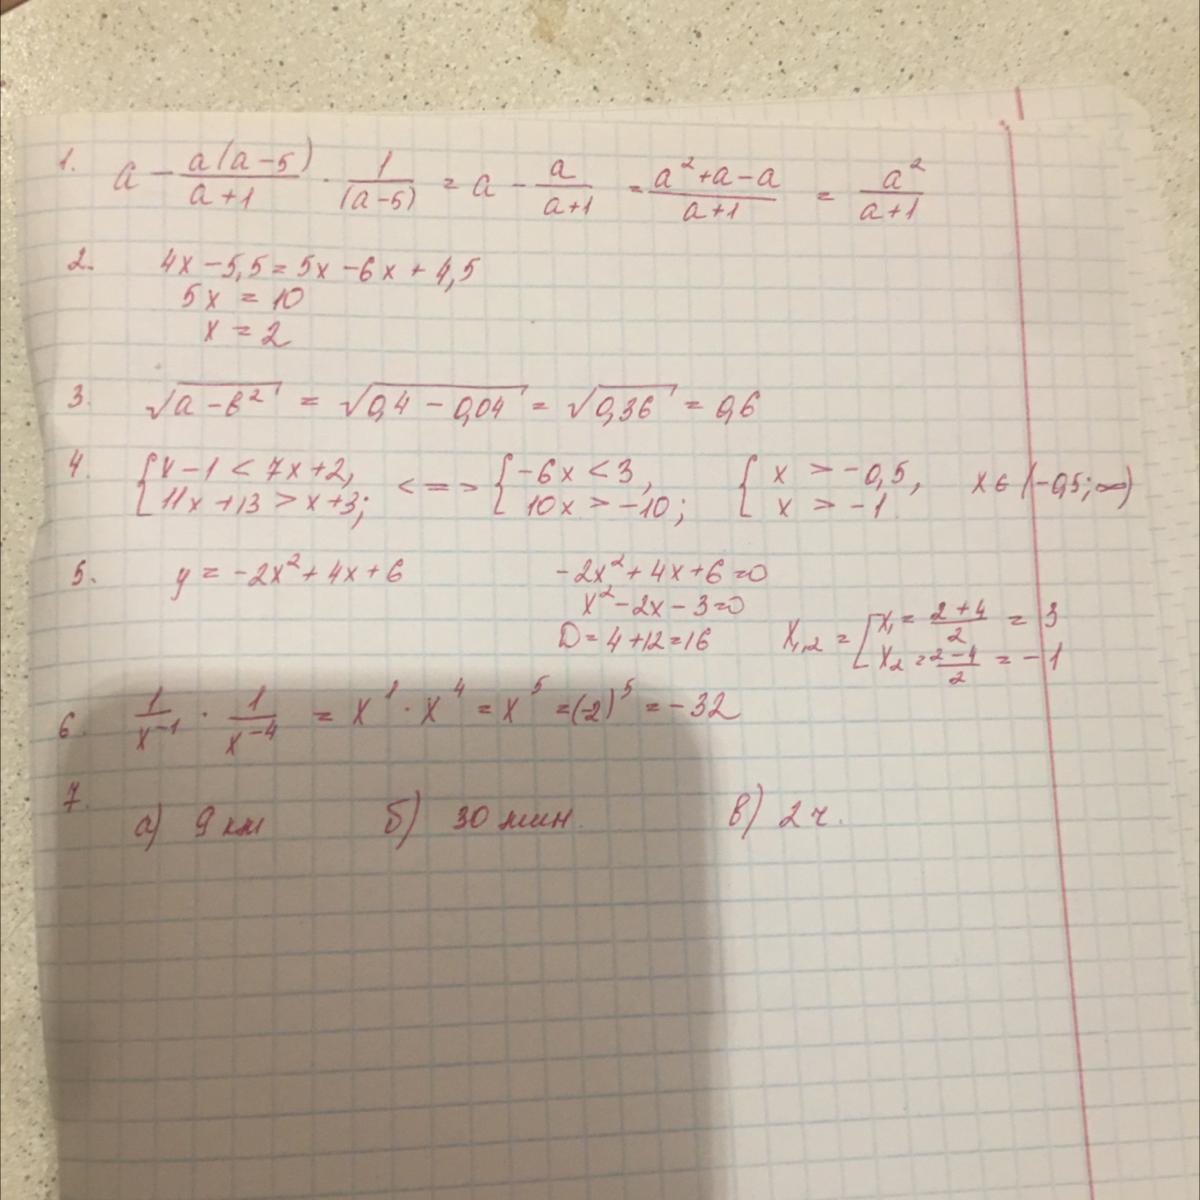 1. a - a(a-5)/(a+1) · 1/(a-5) = a - a/(a+1) = (a²+a-a)/(a+1) = a²/(a+1)
2. 4x - 5,5 = 5x - 6x + 4,5
5x = 10
x = 2
3. √(a - b²) = √(0,4 - 0,04) = √(0,36) = 0,6
4. { x - 1 < 7x + 2, <=> { -6x < 3, { x > -0,5, x ∈ (-0,5; ∞)
11x + 13 > x + 3; 10x > -10; x > -1
5. y = -2x² + 4x + 6 -2x² + 4x + 6 = 0
x² - 2x - 3 = 0
D = 4 + 12 = 16 x₁,₂ = [ x₁ = (2+4)/2 = 3
x₂ = (2-4)/2 = -1
6. 1/x⁻¹ · 1/x⁻⁴ = x¹ · x⁴ = x⁵ = (-2)⁵ = -32
7. а) 9 км б) 30 мин. в) 2 ч.